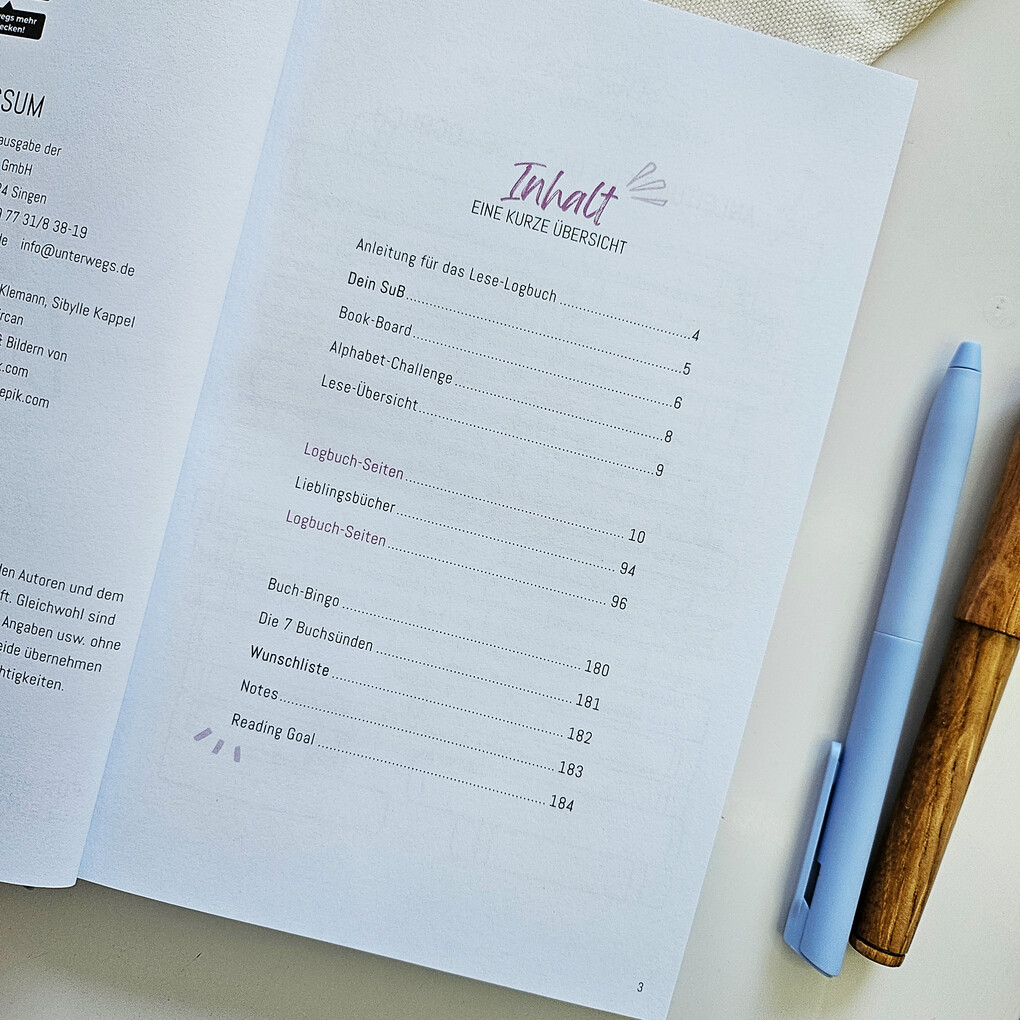 mehr
SUM
ausgabe der
GmbH
Singen
77 31/8 38-19
info@unterwegs.de
Klemann, Sibylle Kappel
Bildern von
.com
epik.com
den Autoren und dem
ft. Gleichwohl sind
Angaben usw. ohne
eide übernehmen
htigkeiten.
Inhalt
EINE KURZE ÜBERSICHT
Anleitung für das Lese-Logbuch 4
Dein SuB 5
Book-Board 6
Alphabet-Challenge 8
Lese-Übersicht 9
Logbuch-Seiten 10
Lieblingsbücher 94
Logbuch-Seiten 96
Buch-Bingo 180
Die 7 Buchsünden 181
Wunschliste 182
Notes 183
Reading Goal 184
3